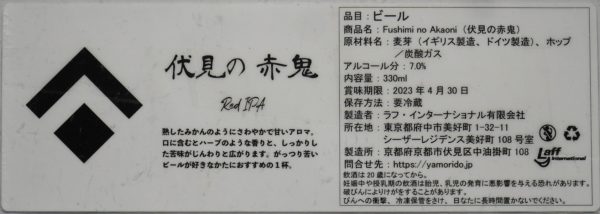 伏見の 赤鬼
Red IPA
熟したみかんのようにさわやかで甘いアロマ。
口に含むとハーブのような香りと、しっかりし
た苦味がじんわりと広がります。がっつり苦い
ビールが好きなかたにおすすめの1杯。
品目：ビール
商品名：Fushimi no Akaoni（伏見の赤鬼）
原材料名：麦芽（イギリス製造、ドイツ製造）、ホップ
／炭酸ガス
アルコール分：7.0%
内容量：330ml
賞味期限：2023 年 4 月 30 日
保存方法：要冷蔵
製造者：ラフ・インターナショナル有限会社
所在地：東京都府中市美好町 1-32-11
シーザーレジデンス美好町 108 号室
製造所：京都府京都市伏見区中油掛町 108
問合せ先：https://yamorido.jp
飲酒は20歳になってから。
妊娠中や授乳期の飲酒は胎児、乳児の発育に悪影響を与える恐れがあります。
破びんによりけがをすることがあります。
びんへの衝撃、冷凍保管をさけ、日なたに長時間置かないでください。
Laff
International